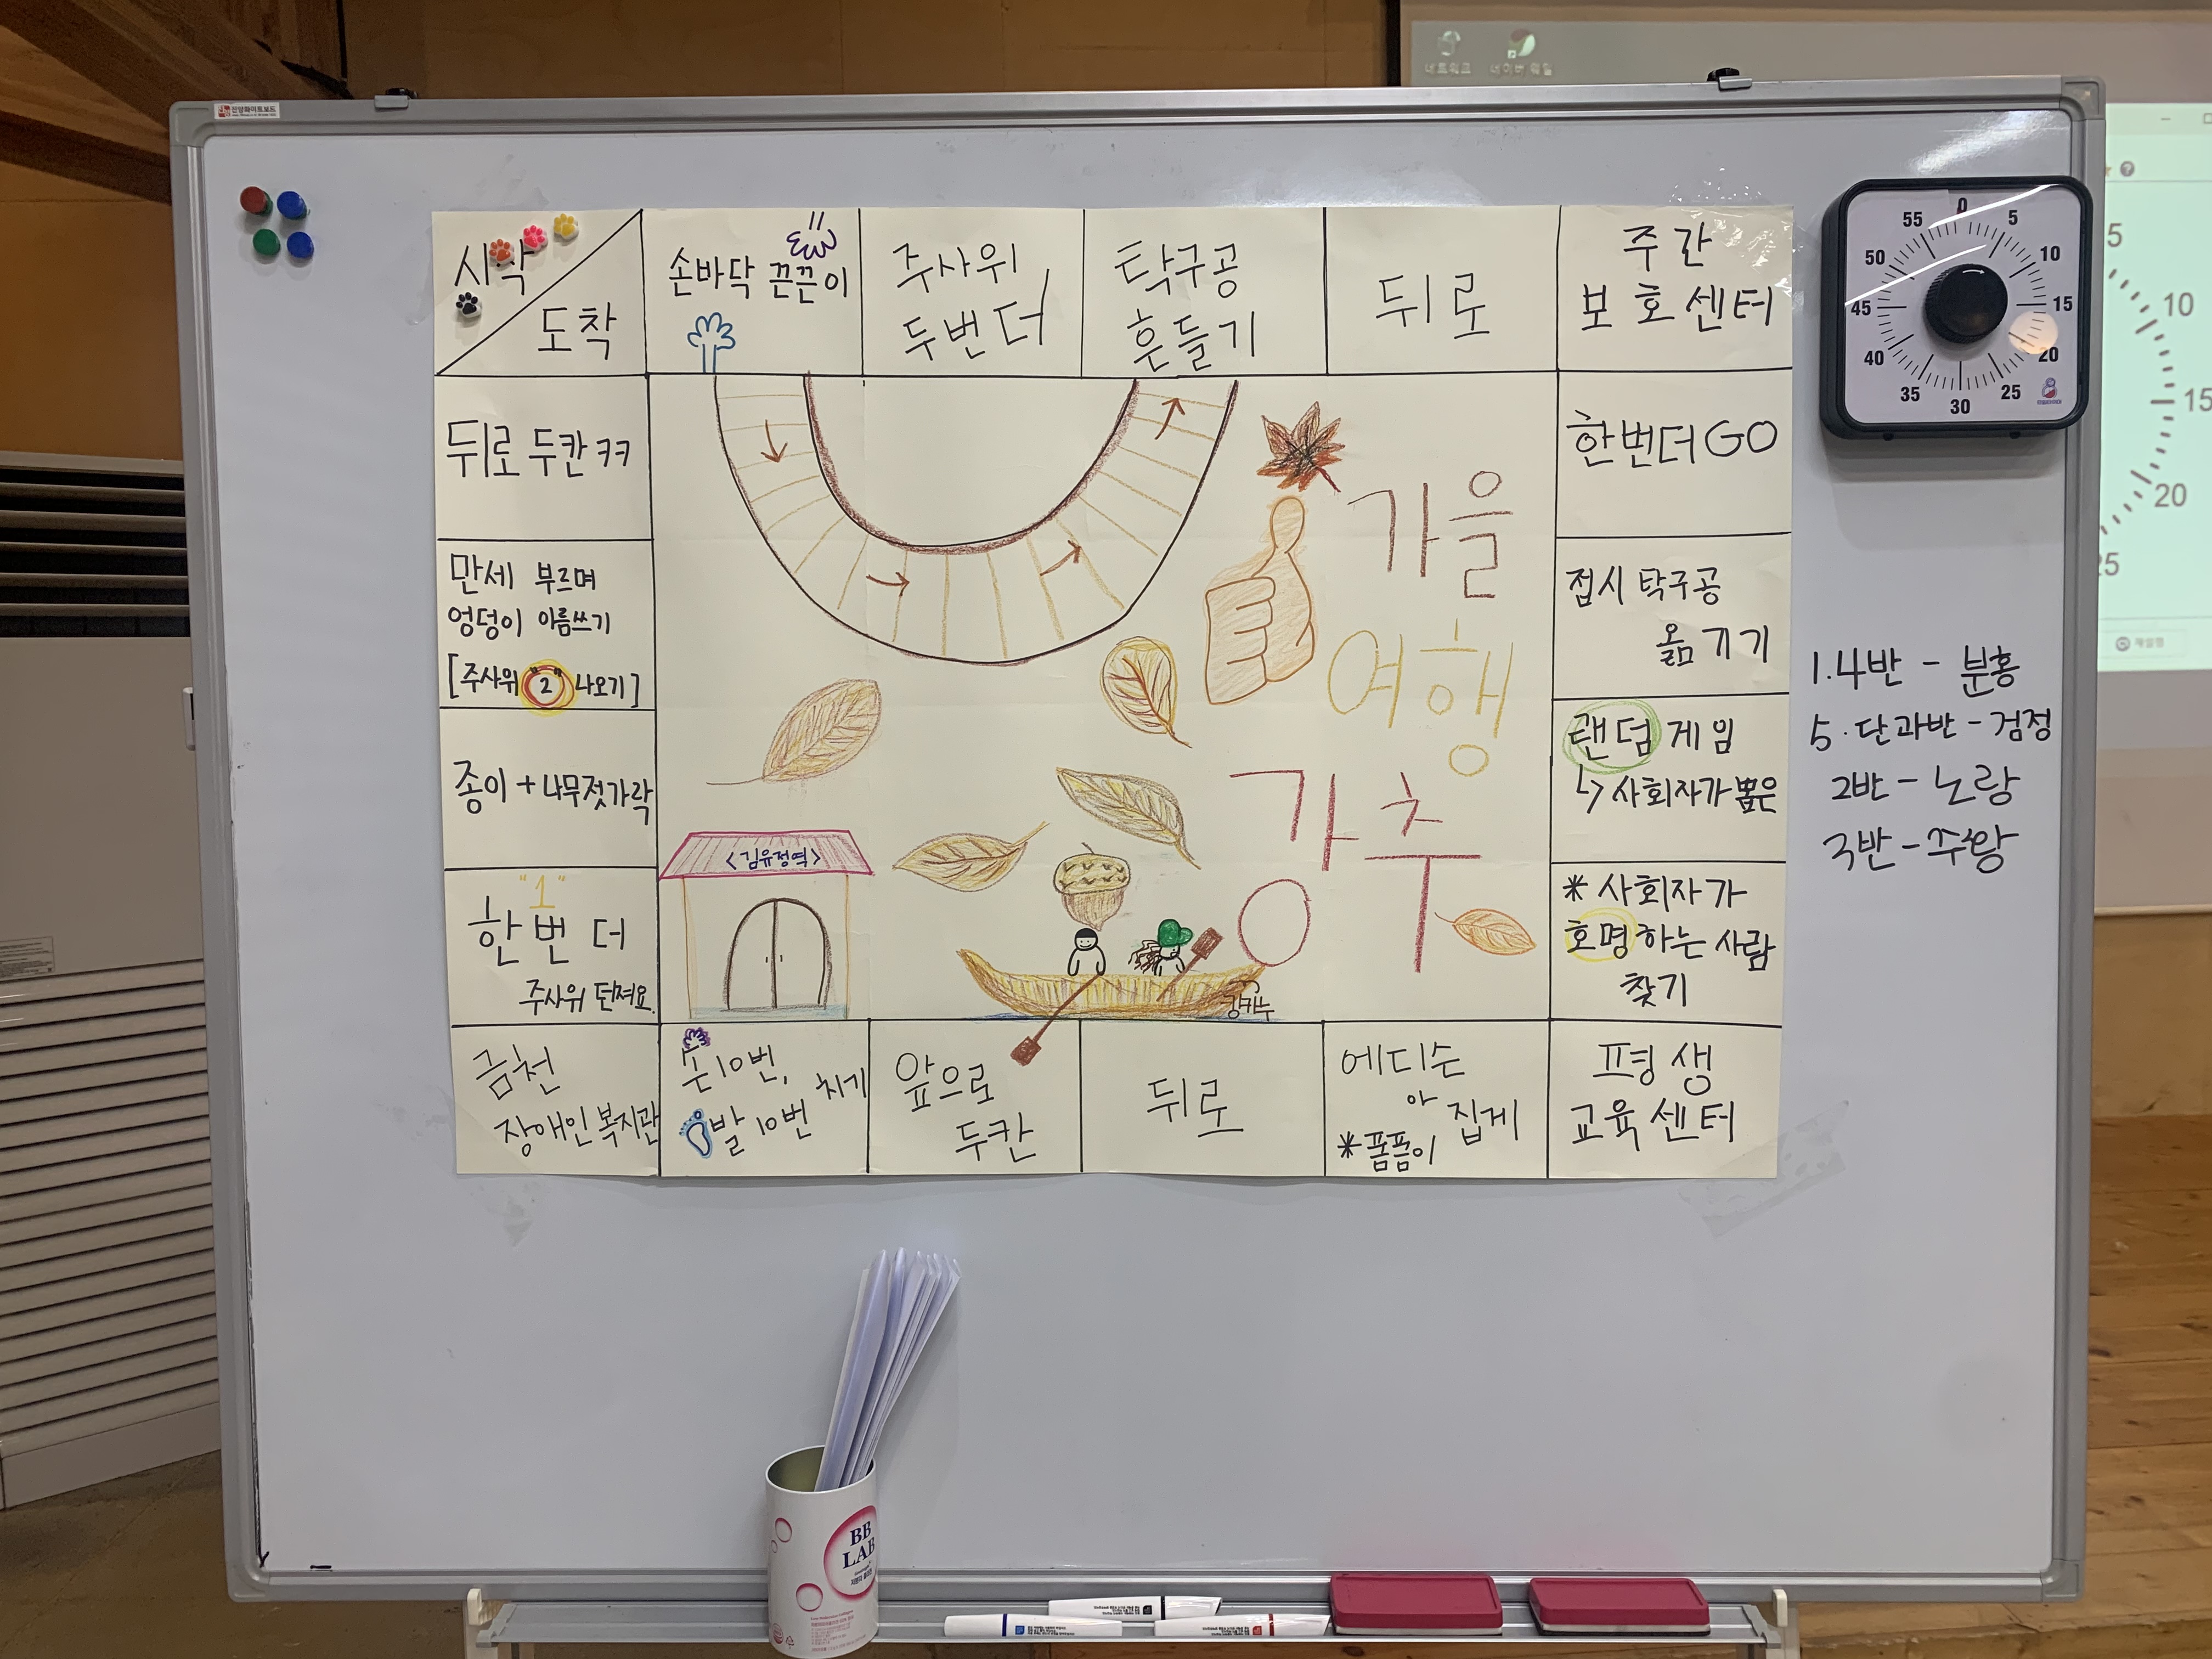 네트워크
네이버 웨일
신양화이트보드
시작
도착
손바닥 끈끈이
주사위
두번 더
탁구공
흔들기
뒤로
주간
보호센터
한번더 GO
접시 탁구공
옮기기
랜덤 게임
↳ 사회자가 뽑은
* 사회자가
호명하는 사람
찾기
평생
교육센터
에디슨
아
집게
* 폼폼이
뒤로
앞으로
두칸
손 10번,
치기
발 10번
금천
장애인복지관
"1"
한번 더
주사위 던져요.
종이 + 나무젓가락
만세 부르며
엉덩이 이름쓰기
[주사위 "2" 나오기]
뒤로 두칸 ㅋㅋ
가을
여행
강추
<김유정역>
강카누
55 0 5
50 10
45 15
40 20
35 30 25
5
10
15
20
25
1.4반 - 분홍
5.단과반 - 검정
2반 - 노랑
3반 - 주황
BB
LAB